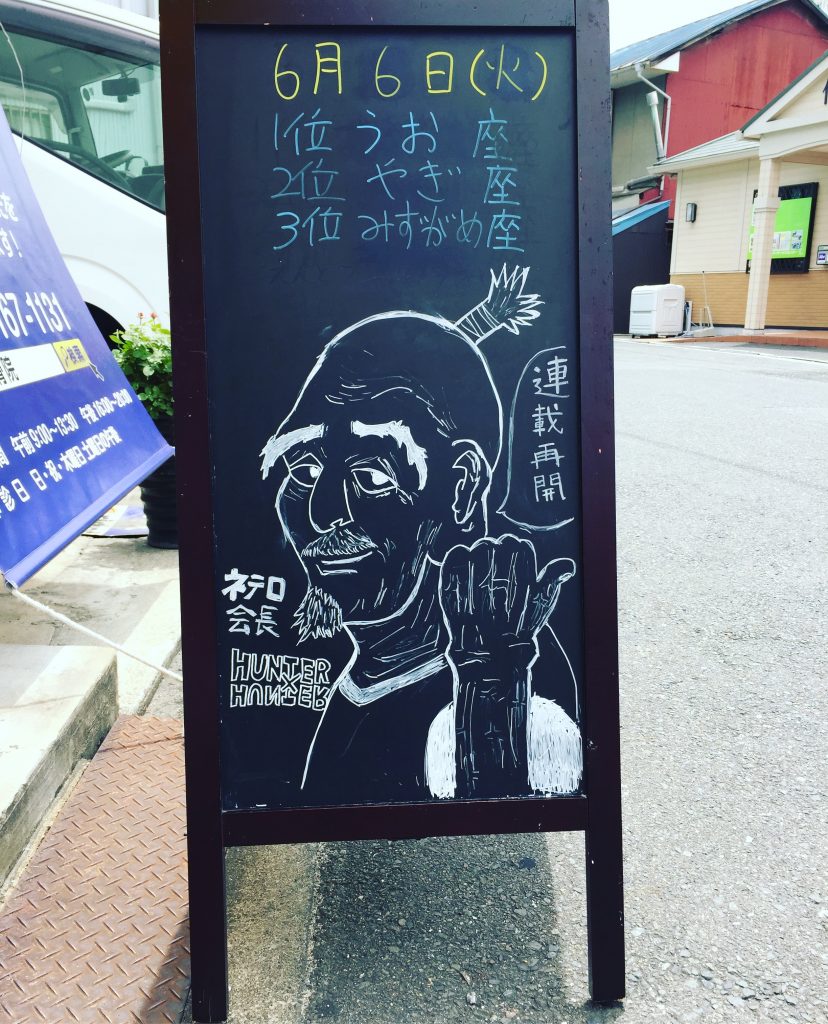 6月6日(火)
1位 うお 座
2位 やぎ 座
3位 みずがめ座
連載再開
ネテロ
会長
HUNTER
×
HUNTER
67-1131
検索
午前9:00〜13:30 午後16:00〜20:00
診日 日・祝・木曜日 土曜日の午後